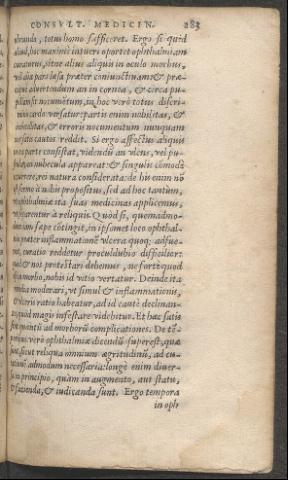 CONSVLT. MEDICIN. 283
totus homo sufficeret. Ergo si quid
aliud, hoc maximè intueri oportet ophthalmiam
curaturus, sitne alius aliquis in oculo morbus,
alia pars læsa præter coniunctiuam: & præ-
aduertendum an in cornea, & circa pu-
pillam sit nocumētum, in hoc verò totus discri-
cardo versatur: partis enim nobilitas, &
& erroris nocumentum nunquam
cautos reddit. Si ergo affectus aliquis
parte consistat, videndū an vlcus, vel pu-
nubecula appareat: & singulis cōmodè
re natura considerata: de his enim nō
à nobis propositus, sed ad hoc tantum,
ophthalmiæ ita suas medicinas applicemus,
à reliquis. Quòd si, quemadmo-
sæpe cōtingit, in ipsomet loco ophthal-
præter inflammationē vlcera quoq; adsue-
curatio reddetur proculdubio difficilior:
& nos protestari debemus, ne fortè quod
morbo, nobis id vitio vertatur. Deinde ita
moderari, vt simul & inflammationis,
& vlceris ratio habeatur, ad id cautè declinan-
quod magis infestare videbitur. Et hæc satis
quantū ad morborū complicationes. De tē-
verò ophthalmiæ dicendū superest, quæ
sicut reliqua omnium ægritudinū, ad cu-
admodum necessaria: longè enim diuer-
in principio, quàm in augmento, aut statu,
facienda, & iudicanda sunt. Ergo tempora
in oph